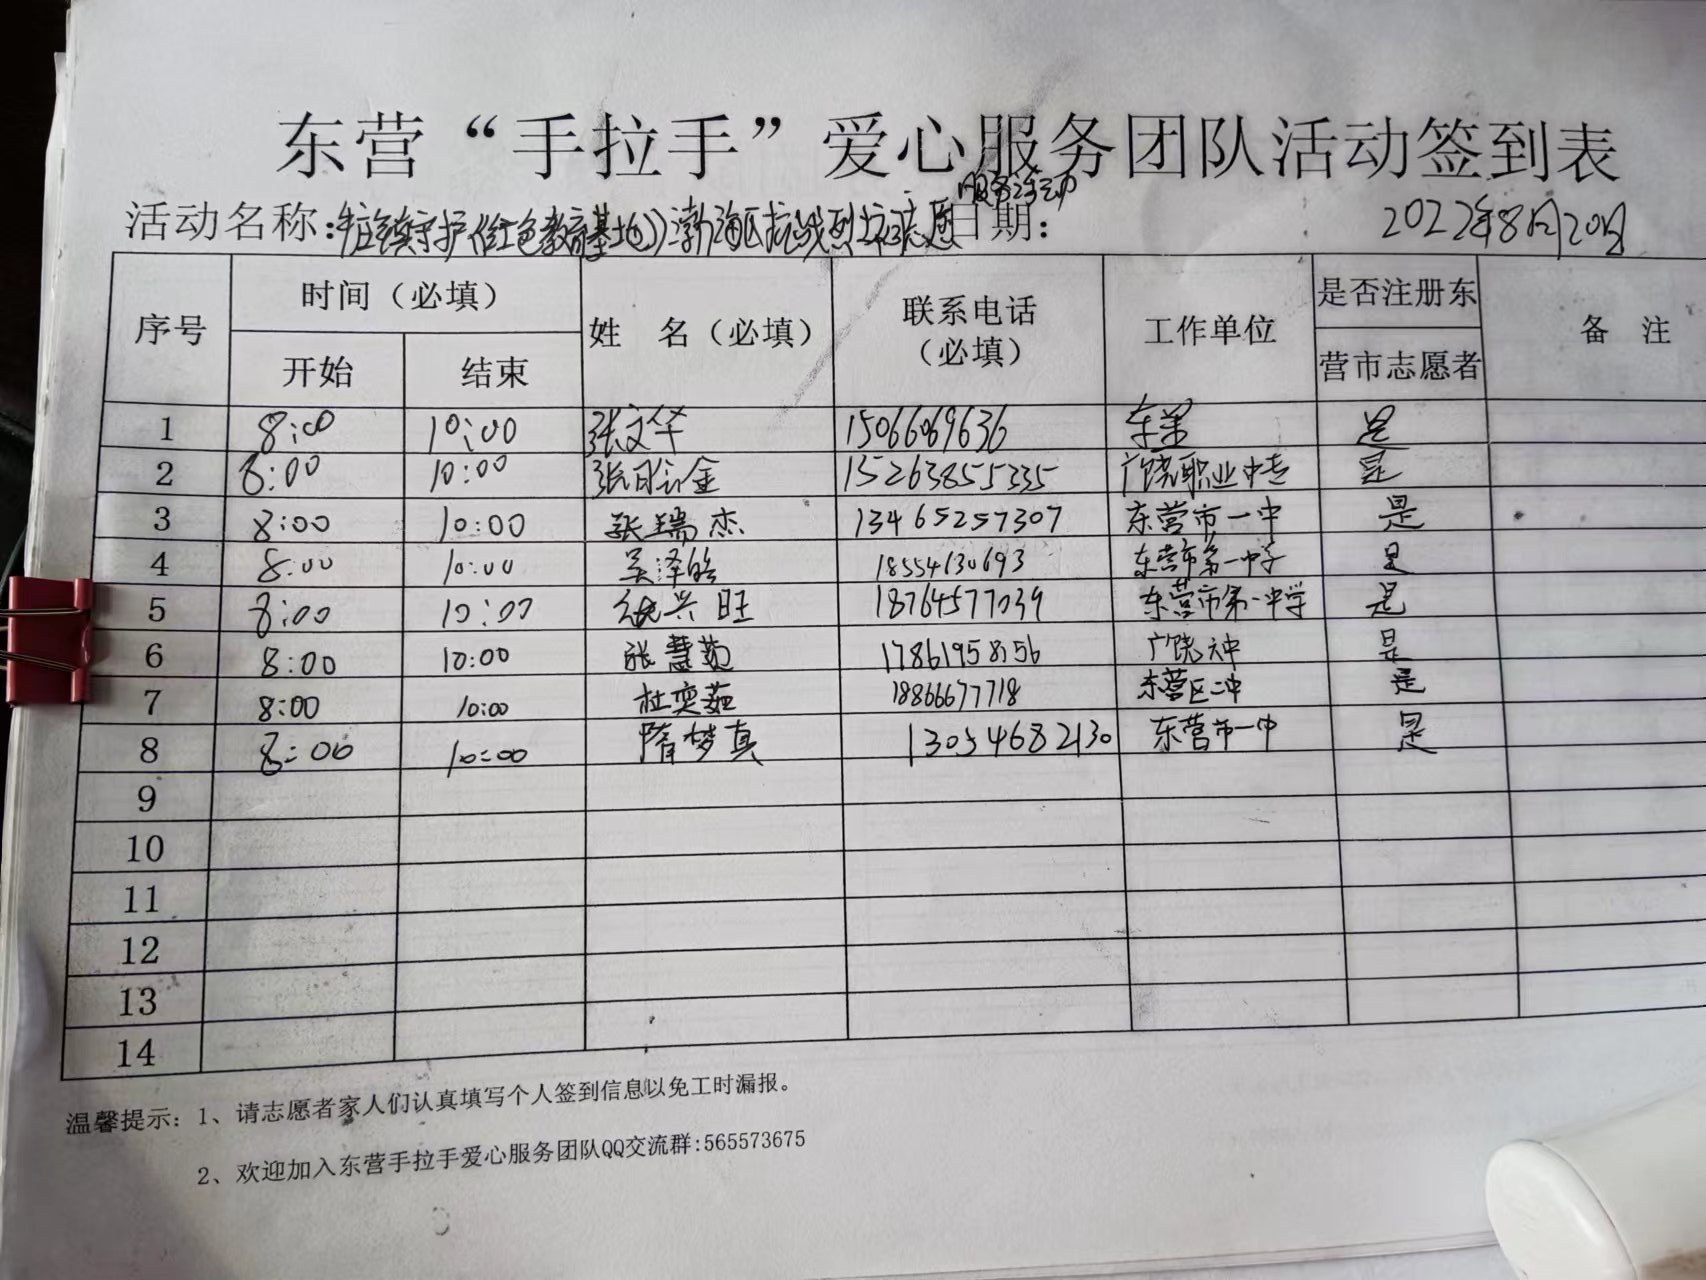 东营“手拉手”爱心服务团队活动签到表
服务活动
活动名称: 镇守护《红色教育基地》渤海区抗战烈士志愿 日期: 2022年8月20日
序号 时间（必填） 姓 名（必填） 联系电话（必填） 工作单位 是否注册东营市志愿者 备 注
开始 结束
1 8:00 10:00 张文华 15066069636 是
2 8:00 10:00 金 15263855335 广饶职业中专 是
3 8:00 10:00 张瑞杰 13465257307 东营市一中 是
4 8:00 10:00 吴泽皓 18554130693 东营市第一中学 是
5 8:00 10:00 兴旺 18764577039 东营市第一中学 是
6 8:00 10:00 张慧茹 17861958156 广饶 是
7 8:00 10:00 杜奕茹 18866677718 东营区二中 是
8 8:00 10:00 隋梦真 13054682130 东营市一中 是
9
10
11
12
13
14
温馨提示: 1、请志愿者家人们认真填写个人签到信息以免工时漏报。
2、欢迎加入东营手拉手爱心服务团队QQ交流群:565573675